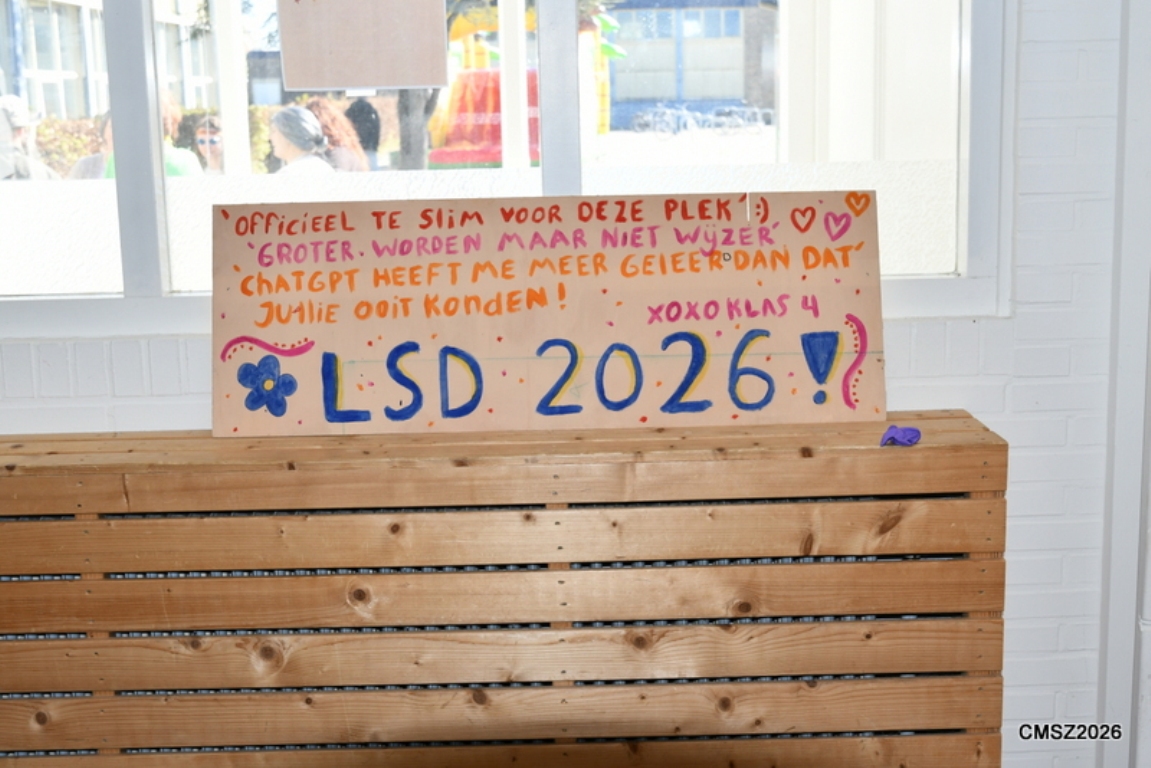 'OFFICIEEL TE SLIM VOOR DEZE PLEK' :)
'GROTER. WORDEN MAAR NIET WIJZER'
'CHATGPT HEEFT ME MEER GELEERD DAN DAT'
JULLIE OOIT KONDEN!
XOXO KLAS 4
LSD 2026!
CMSZ2026